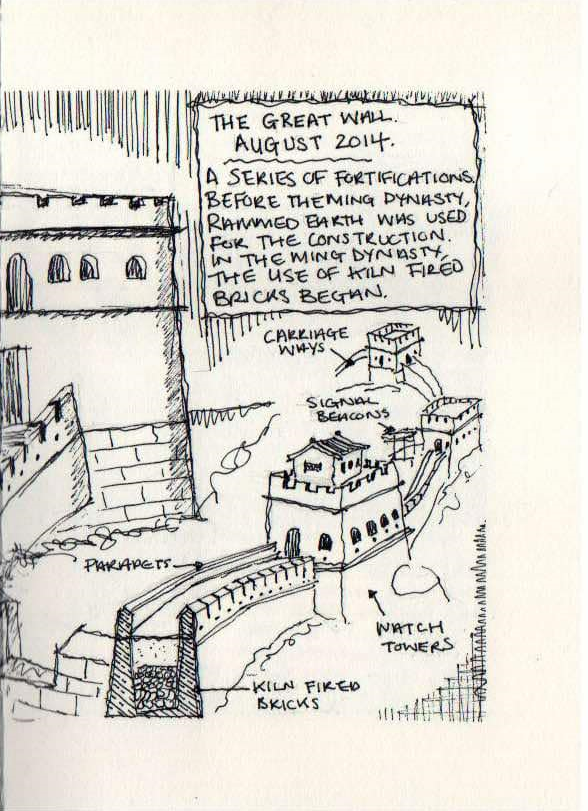 THE GREAT WALL.
AUGUST 2014.
A SERIES OF FORTIFICATIONS.
BEFORE THE MING DYNASTY,
RAMMED EARTH WAS USED
FOR THE CONSTRUCTION.
IN THE MING DYNASTY,
THE USE OF KILN FIRED
BRICKS BEGAN.
CARRIAGE
WAYS
SIGNAL
BEACONS
PARAPETS
WATCH
TOWERS
KILN FIRED
BRICKS